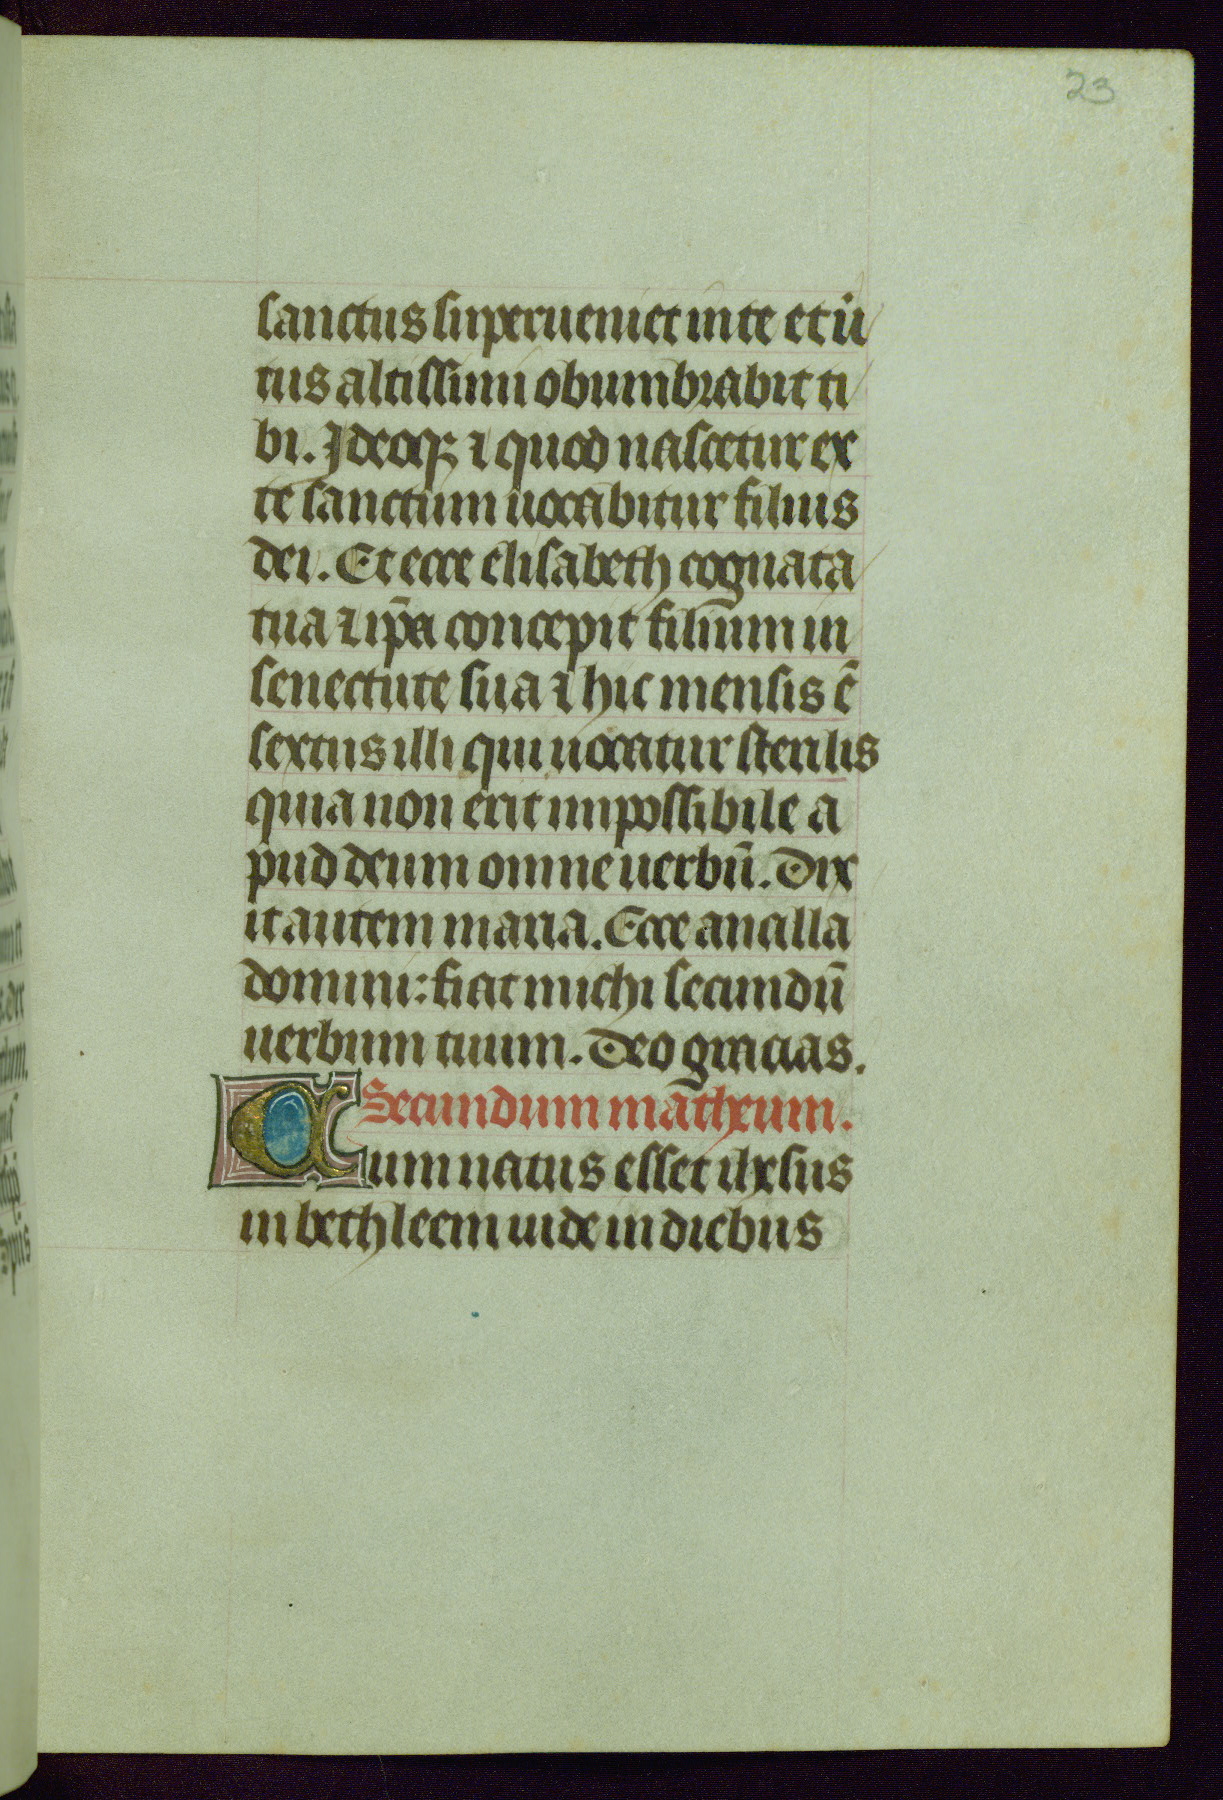 23
sanctus superueniet in te et uͥ
tus altissimi obumbrabit ti
bi. Ideoqꝫ ⁊ quod nascetur ex
te sanctum uocabitur filius
dei. Et ecce elisabeth cognata
tua ⁊ ip̄a concepit filium in
senectute sua ⁊ hic mensis ē
sextus illi qui uocatur sterilis
quia non erit impossibile a
pud deum omne uerbū. Dix
it autem maria. Ecce ancilla
domini: fiat michi secundū
uerbum tuum. Deo gracias.
Secundum matheum.
Cum natus esset ihesus
in bethleem iude in diebus